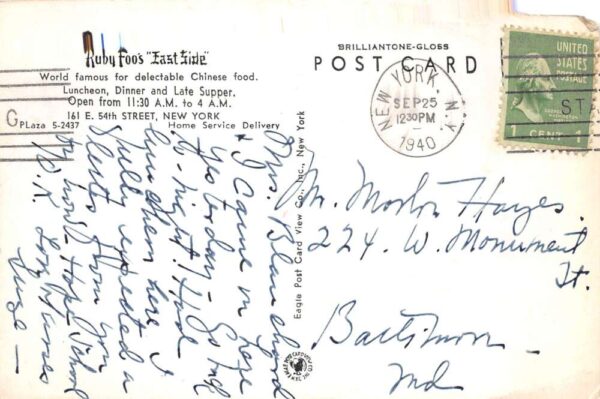 Ruby Foo's "East Side"
World famous for delectable Chinese food.
Luncheon, Dinner and Late Supper.
Open from 11:30 A.M. to 4 A.M.
161 E. 54th STREET, NEW YORK
PLaza 5-2437 Home Service Delivery
BRILLIANTONE-GLOSS
POST CARD
NEW YORK, N.Y.
SEP 25
1230 PM
1940
UNITED
STATES
POSTAGE
1 CENT 1
Eagle Post Card View Co., Inc., New York
Mrs. Blanchard
& I came on here
yesterday - Go
to-night. Had
luncheon here &
fully expected a
from you
Hope School
W. R.
Mr. Morton Hayes.
224 W. Monument
St.
Baltimore
Md